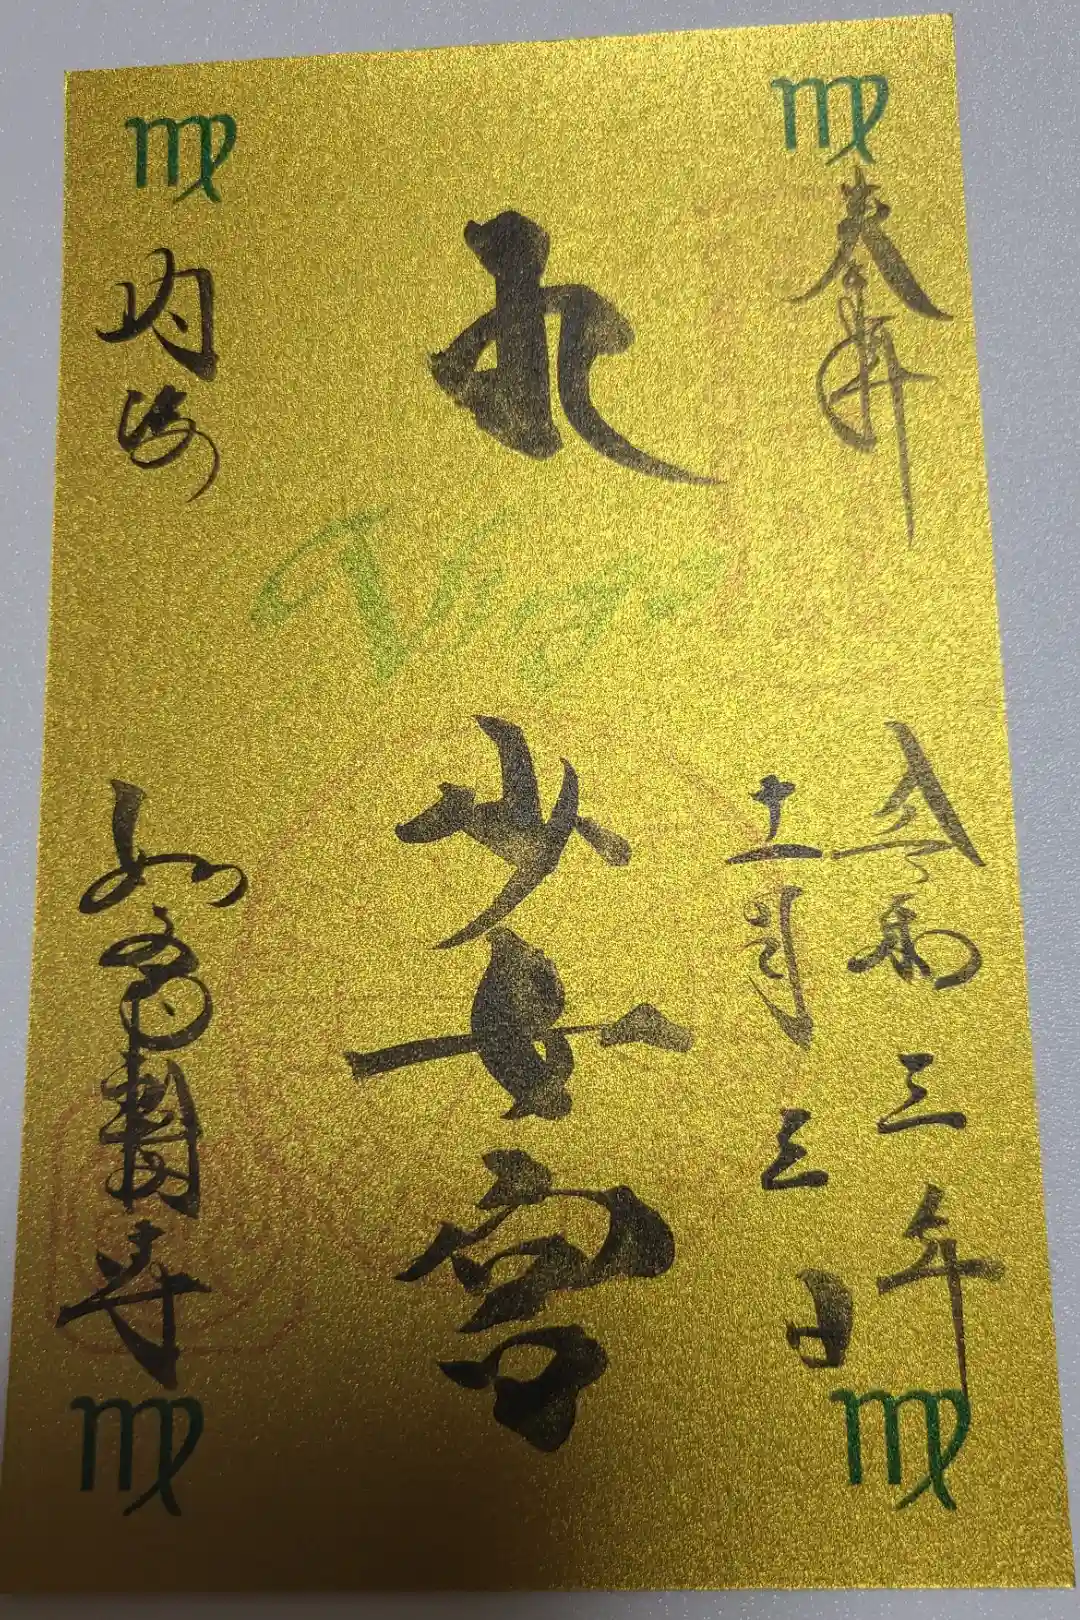 奉拝
令和三年
十一月三日
Virgo
少女宮
内海
如意輪寺